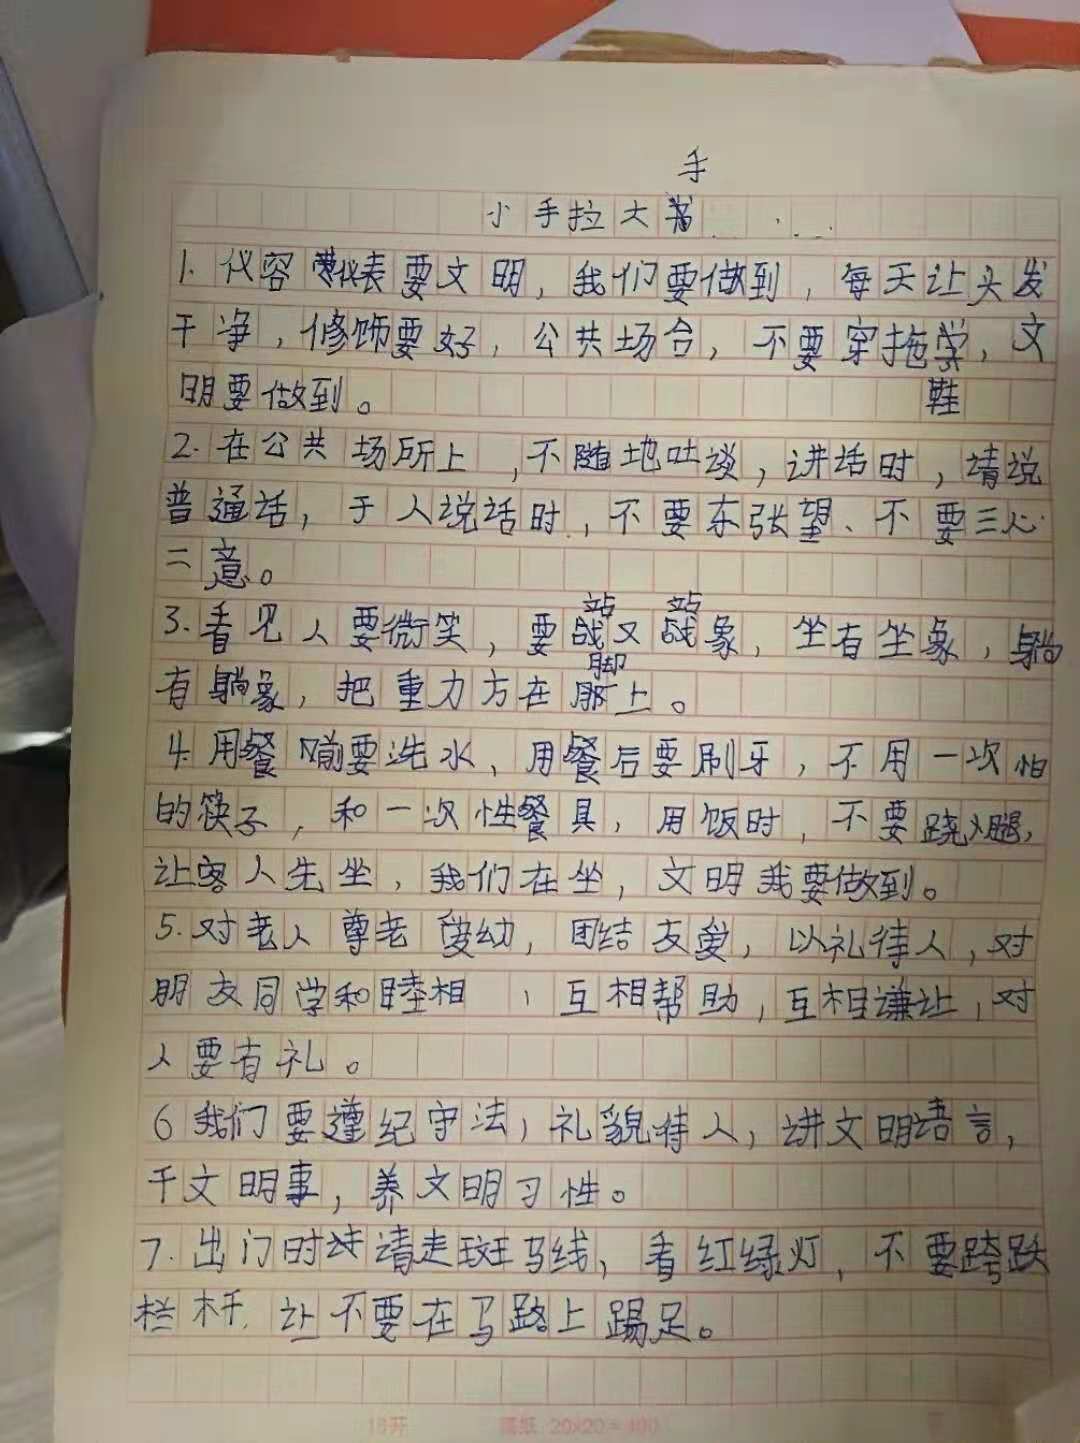 手
小手拉大
1. 仪容仪表要文明,我们要做到,每天让头发
干净,修饰要好,公共场合,不要穿拖学,文
鞋
明要做到。
2. 在公共场所上,不随地吐谈,讲话时,请说
普通话,于人说话时,不要东张望、不要三心
二意。
站 站
3. 看见人要微笑,要战又战象,坐有坐象,躺
脚
有躺象,把重力方在那上。
4. 用餐前要洗水、用餐后要刷牙,不用一次怕
的筷子,和一次性餐具,用饭时,不要跷火腿,
让客人先坐,我们在坐,文明我要做到。
5. 对老人尊老爱幼,团结友爱,以礼待人,对
朋友同学和睦相,互相帮助,互相谦让,对
人要有礼。
6 我们要遵纪守法,礼貌待人,讲文明语言,
干文明事,养文明习性。
7. 出门时请走斑马线,看红绿灯,不要跨跃
栏杆,让不要在马路上踢足。
18开 稿纸 20×20=400